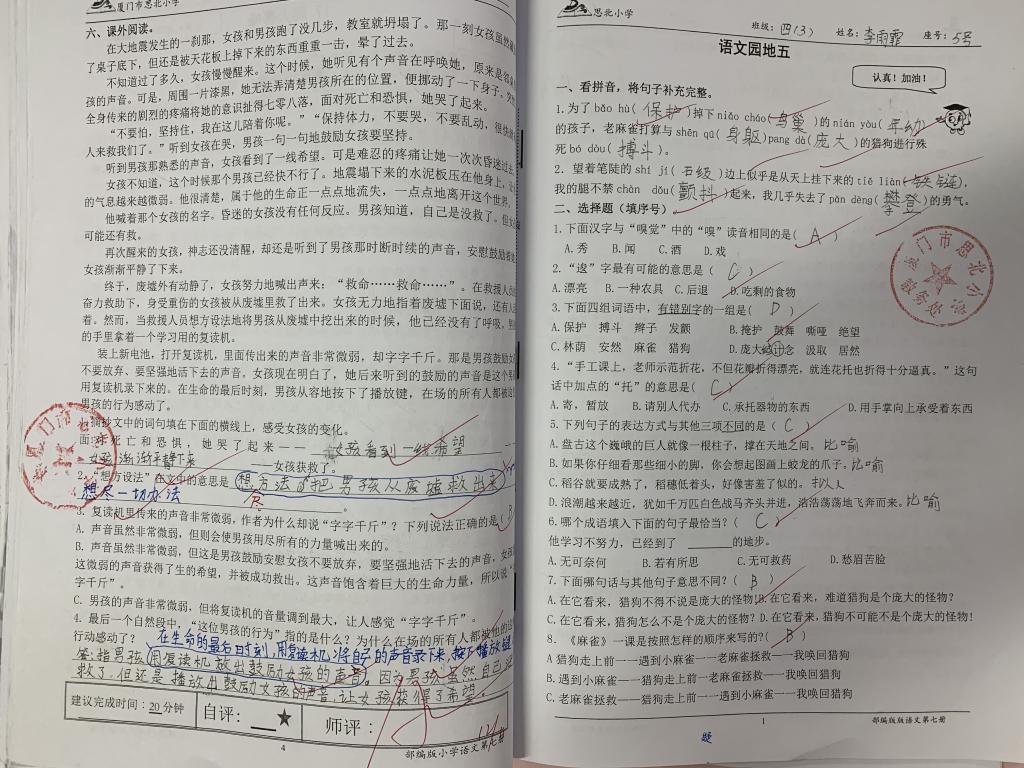 厦门市思北小学
六、课外阅读。
在大地震发生的一刹那，女孩和男孩跑了没几步，教室就坍塌了。那一刻女孩虽然
了桌子底下，但还是被天花板上掉下来的东西重重一击，晕了过去。
不知道过了多久，女孩慢慢醒来。这个时候，她听见有个声音在呼唤她，原来是
孩的声音。可是，周围一片漆黑，她无法弄清楚男孩所在的位置，便挪动了一下身子。
全身传来的剧烈的疼痛将她的意识扯得七零八落，面对死亡和恐惧，她哭了起来。
“不要怕，坚持住，我在这儿陪着你呢。”“保持体力，不要哭，不要乱动，很快
人来救我们了。”听到女孩在哭，男孩一句一句地鼓励女孩要坚持。
听到男孩那熟悉的声音，女孩看到了一线希望。可是难忍的疼痛让她一次次昏迷过去
女孩不知道，这个时候那个男孩已经快不行了。地震塌下来的水泥板压在他身上，
的气息越来越微弱。他很清楚，属于他的生命正一点点地流失，一点点地离开这个世界
他喊着那个女孩的名字。昏迷的女孩没有任何反应。男孩知道，自己是没救了。但
可能还有救。
再次醒来的女孩，神志还没清醒，却还是听到了男孩那时断时续的声音，安慰鼓励着
女孩渐渐平静了下来。
终于，废墟外有动静了，女孩努力地喊出声来：“救命……救命……”。在救援人员
奋力救助下，身受重伤的女孩被从废墟里救了出来。女孩无力地指着废墟下面说，还有
着。然而，当救援人员想方设法地将男孩从废墟中挖出来的时候，他已经没有了呼吸。
的手里拿着一个学习用的复读机。
装上新电池，打开复读机，里面传出来的声音非常微弱，却字字千斤。那是男孩鼓励
不要放弃、要坚强地活下去的声音。女孩现在明白了，她后来听到的鼓励的声音是这个男
用复读机录下来的。在生命的最后时刻，男孩从容地按下了播放键，在场的所有人都被这
男孩的行为感动了。
摘抄文中的词句填在下面的横线上，感受女孩的变化。
面对死亡和恐惧，她哭了起来——女孩看到一线希望——
女孩渐渐平静下来——女孩获救了。
2.“想方设法”在文中的意思是想方法把男孩从废墟救出来
想尽一切办法 尽 。
3. 复读机里传来的声音非常微弱，作者为什么却说“字字千斤”？下列说法正确的是( B
A. 声音虽然非常微弱，但则会使男孩用尽所有的力量喊出来的。
B. 声音虽然非常微弱，但这是男孩鼓励安慰女孩不要放弃，要坚强地活下去的声音，女孩
这微弱的声音获得了生的希望，并被成功救出。这声音饱含着巨大的生命力量，所以说“
字千斤”。
C. 男孩的声音非常微弱，但将复读机的音量调到最大，让人感觉“字字千斤”。
4. 最后一个自然段中，“这位男孩的行为”指的是什么？为什么在场的所有人都被他的
行动感动了？ 在生命的最后时刻,用复读机将自己的声音录下来,按下播放键
答:指男孩用复读机放出鼓励女孩的声音。因为男孩虽然自己没
救了,但还是播放出鼓励女孩的声音,让女孩获得了希望。
建议完成时间：20分钟 自评：___★ 师评：
4 部编版小学语文第七册
思北小学
班级：四(3) 姓名：李雨霏 座号：5号
语文园地五
认真！加油！
一、看拼音，将句子补充完整。
1.为了bǎo hù( 保护 )掉下niǎo cháo( 鸟巢 )的nián yòu( 年幼
的孩子，老麻雀打算与shēn qū( 身躯 )pang dà( 庞大 )的猎狗进行殊
死bó dòu( 搏斗 )。
2. 望着笔陡的shí jí( 石级 )边上似乎是从天上挂下来的tiě liàn( 铁链 )，
我的腿不禁chàn dǒu( 颤抖 )起来，我几乎失去了pān dēng( 攀登 )的勇气。
二、选择题（填序号）。
1.下面汉字与“嗅觉”中的“嗅”读音相同的是( A )
A.秀 B.闻 C.酒 D.戏
2.“逡”字最有可能的意思是（ C ）
A.漂亮 B.一种农具 C.后退 D.吃剩的食物
3.下面四组词语中，有错别字的一组是( D )
A.保护 搏斗 辫子 发颤 B.掩护 鼓舞 嘶哑 绝望
C.林荫 安然 麻雀 猎狗 D.庞大 纪念 汲取 居然
4.“手工课上，老师示范折花，不但花瓣折得漂亮，就连花托也折得十分逼真。”这句
话中加点的“托”的意思是( C )
A.寄，暂放 B.请别人代办 C.承托器物的东西 D.用手掌向上承受着东西
5.下列句子的表达方式与其他三项不同的是( C )
A.盘古这个巍峨的巨人就像一根柱子，撑在天地之间。 比喻
B.如果你仔细看那些细小的脚，你会想起图画上蛟龙的爪子。 比喻
C.稻谷就要成熟了，稻穗低着头，好像害羞了似的。 拟人
D.浪潮越来越近，犹如千万匹白色战马齐头并进，浩浩荡荡地飞奔而来。 比喻
6.哪个成语填入下面的句子最恰当？( C )
他学习不努力，已经到了 ______的地步。
A.无可奈何 B.若有所思 C.无可救药 D.愁眉苦脸
7.下面哪句话与其他句子意思不同？( B )
A.在它看来，猎狗不得不说是庞大的怪物！B.在它看来，难道猎狗是个庞大的怪物？
C.在它看来，猎狗怎么不是个庞大的怪物？D.在它看来，猎狗不可能不是个庞大的怪物！
8. 《麻雀》一课是按照怎样的顺序来写的?( B )
A猎狗走上前——遇到小麻雀——老麻雀拯救——我唤回猎狗
B.遇到小麻雀——猎狗走上前—老麻雀拯救——我唤回猎狗
C.老麻雀拯救——猎狗走上前——遇到小麻雀——我唤回猎狗
1 部编版版语文第七册
题